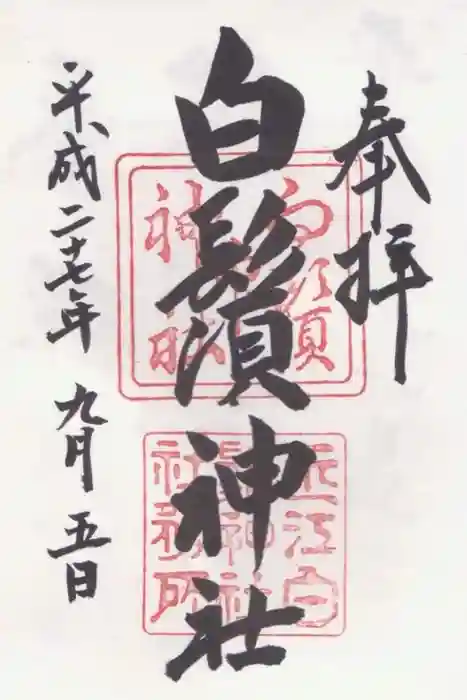 奉拝
白鬚神社
平成二十七年 九月 五日
近江白
鬚神社
社務所